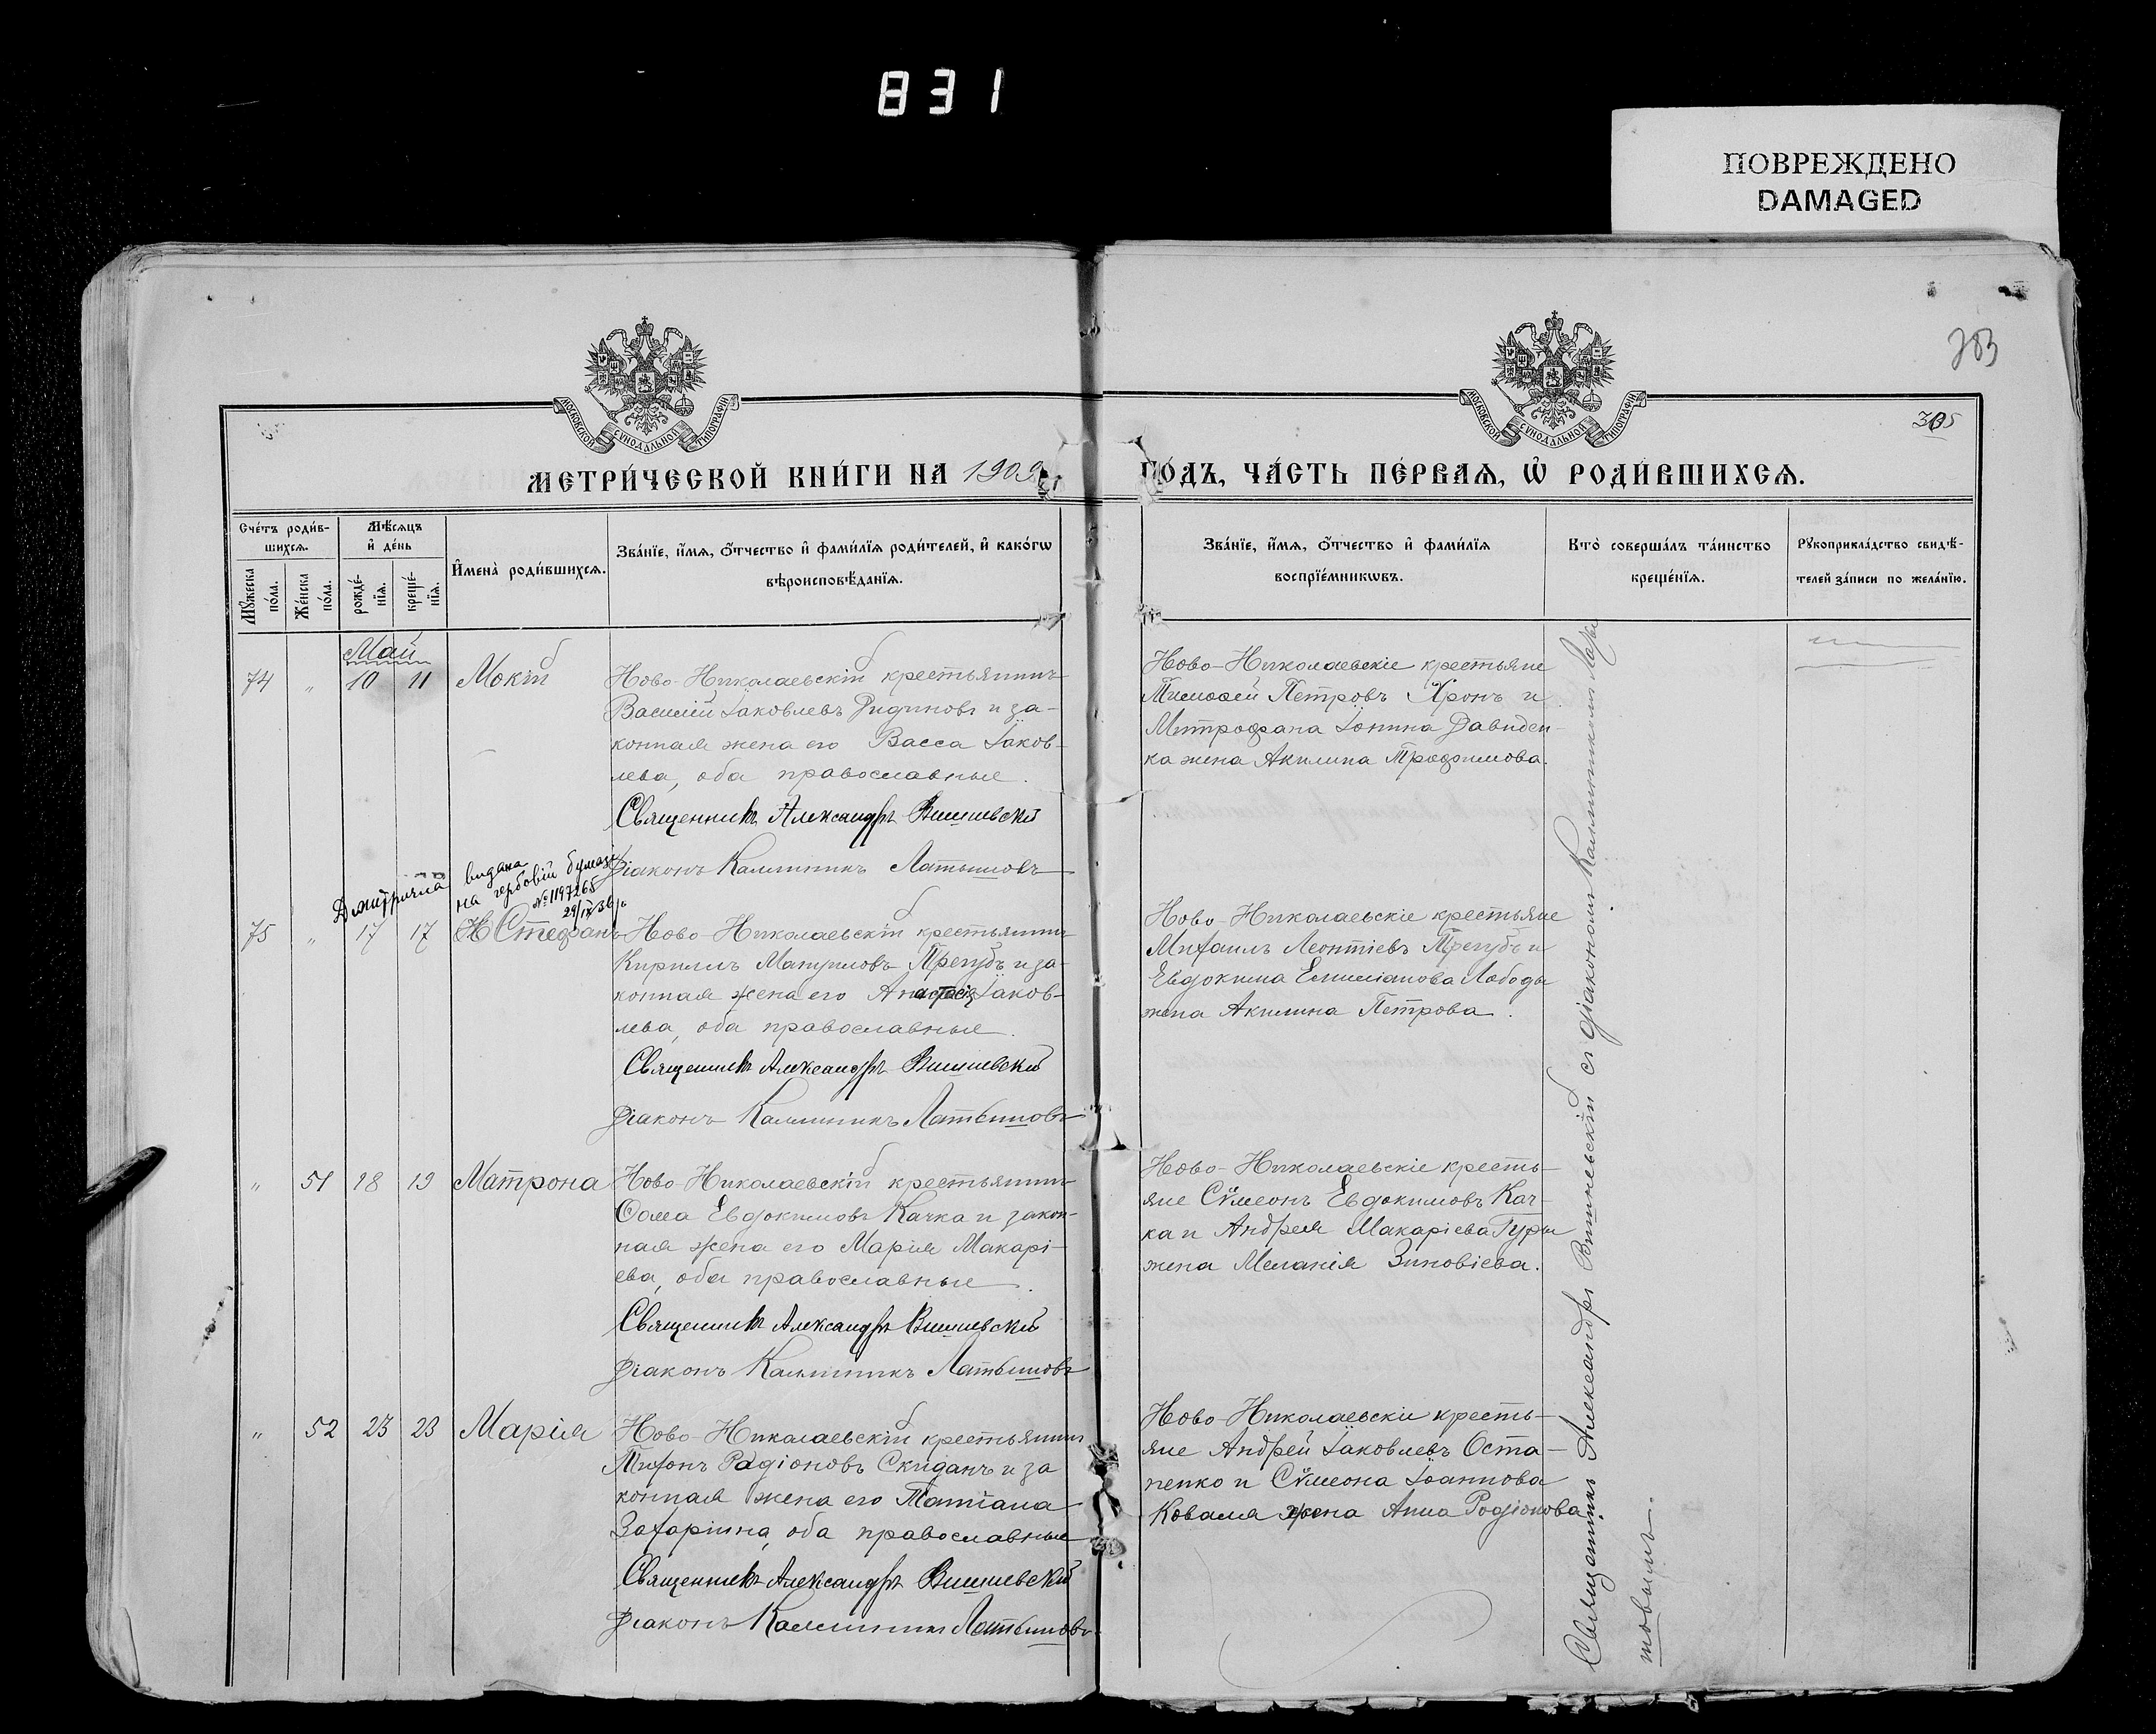 831
ПОВРЕЖДЕНО
DAMAGED
283
305
МОСКОВСКОЙ СѴНОДАЛЬНОЙ ТИПОГРАФІИ
МОСКОВСКОЙ СѴНОДАЛЬНОЙ ТИПОГРАФІИ
МЕТРИ́ЧЕСКОЙ КНИ́ГИ НА 1909
ГО́ДЪ, ЧА́СТЬ ПЕ́РВАѦ, Ѽ РОДИ́ВШИХСѦ.
Сче́тъ роди́в-
шихсѧ.
Мꙋ́жеска по́ла.
Же́нска по́ла.
Мѣ́сѧцъ
и҆ де́нь
рожде́-
нїѧ.
креще́-
нїѧ.
И҆мена̀ роди́вшихсѧ.
Зва́нїе, и҆́мѧ, ѻ҆́тчество и҆ фами́лїѧ роди́телей, и҆ како́гѡ
вѣроисповѣ́данїѧ.
Зва́нїе, и҆́мѧ, ѻ҆́тчество и҆ фами́лїѧ
воспрїе́мникѡвъ.
Кто̀ соверша́лъ та́инство
креще́нїѧ.
Рꙋкоприкла́дство свидѣ́-
телей за́писи по жела́нїю.
Май
74 " 10 11 Мокій
Ново-Николаевскій крестьянинъ
Василій Іаковлевъ Ридиновъ и за-
конная жена его Васса Іаков-
лева, оба православные.
Священникъ Александръ Вишневскій
Діаконъ Каллиникъ Латышовъ
Ново-Николаевскіе крестьяне
Тимоѳей Петровъ Хронъ и
Митрофана Іонина Давиден-
ка жена Акилина Трофимова.
видана
на гербовій бумазі
№ 1197265
29/IX 36 р.
75 " 17 17 Стефанъ
Ново-Николаевскій крестьянинъ
Кириллъ Мануиловъ Трегубъ и за-
конная жена его Анастасія Іаков-
лева, оба православные.
Священникъ Александръ Вишневскій
Діаконъ Каллиникъ Латышовъ
Ново-Николаевскіе крестьяне
Михаилъ Леонтіевъ Трегубъ и
Евдокима Емиліанова Лободы
жена Акилина Петрова.
" 51 18 19 Матрона
Ново-Николаевскій крестьянинъ
Ѳома Евдокимовъ Качка и закон-
ная жена его Марія Макарі-
ева, оба православные.
Священникъ Александръ Вишневскій
Діаконъ Каллиникъ Латышовъ
Ново-Николаевскіе кресть-
яне Сѵмеонъ Евдокимовъ Кач-
ка и Андрея Макаріева Гуры
жена Меланія Зиновіева.
" 52 23 23 Марія
Ново-Николаевскій крестьянинъ
Тихонъ Радіоновъ Скиданъ и за
конная жена его Татіана
Захаріина, оба православные
Священникъ Александръ Вишневскій
Діаконъ Каллиникъ Латышовъ
Ново-Николаевскіе кресть-
яне Андрей Іаковлевъ Оста-
пенко и Сѵмеона Іоаннова
Коваля жена Анна Родіонова
Священникъ Александръ Вишневскій съ діакономъ Каллиникомъ Латы
шовымъ.